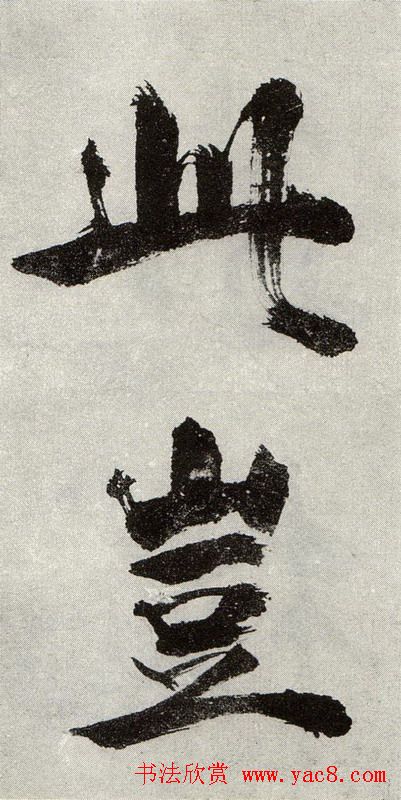 此
豈
书法欣赏 www.yac8.com